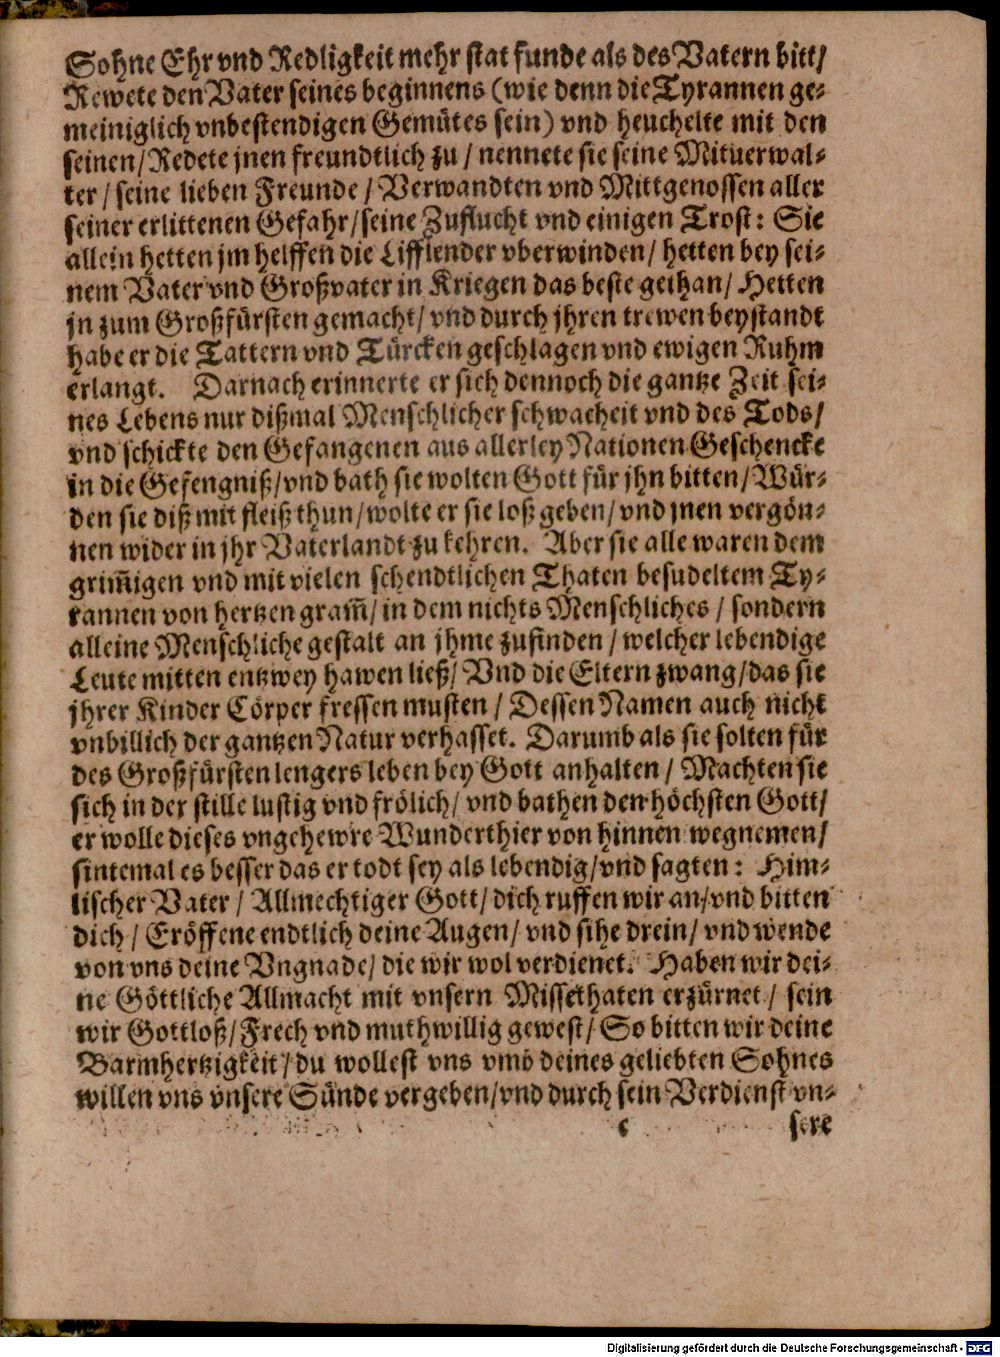 Sohne Ehr vnd Redligkeit mehr stat funde als des Vatern bitt/
Rewete den Vater seines beginnens (wie denn die Tyrannen ge-
meiniglich vnbestendigen Gemütes sein) vnd heuchelte mit den
seinen/ Redete jnen freundtlich zu / nennete sie seine Mituerwal-
ter / seine lieben Freunde / Verwandten vnd Mittgenossen aller
seiner erlittenen Gefahr/ seine Zuflucht vnd einigen Trost: Sie
allein hetten jm helffen die Lifflender vberwinden/ hetten bey sei-
nem Vater vnd Großvater in Kriegen das beste gethan/ Hetten
jn zum Großfürsten gemacht/ vnd durch jhren trewen beystandt
habe er die Tattern vnd Türcken geschlagen vnd ewigen Ruhm
erlangt. Darnach erinnerte er sich dennoch die gantze Zeit sei-
nes Lebens nur dißmal Menschlicher schwacheit vnd des Tods/
vnd schickte den Gefangenen aus allerley Nationen Geschencke
in die Gefengniß/ vnd bath sie wolten Gott für jhn bitten/ Wür-
den sie diß mit fleiß thun/ wolte er sie loß geben/ vnd jnen vergön-
nen wider in jhr Vaterlandt zu kehren. Aber sie alle waren dem
grim̃igen vnd mit vielen schendtlichen Thaten besudeltem Ty-
rannen von hertzen gram̃/ in dem nichts Menschliches / sondern
alleine Menschliche gestalt an jhme zufinden / welcher lebendige
Leute mitten entzwey hawen ließ/ Vnd die Eltern zwang/ das sie
jhrer Kinder Cörper fressen musten / Dessen Namen auch nicht
vnbillich der gantzen Natur verhasset. Darumb als sie solten für
des Großfürsten lengers leben bey Gott anhalten / Machten sie
sich in der stille lustig vnd frölich/ vnd bathen den höchsten Gott/
er wolle dieses vngehewre Wunderthier von hinnen wegnemen/
sintemal es besser das er todt sey als lebendig/ vnd sagten: Him-
lischer Vater / Allmechtiger Gott/ dich ruffen wir an/ vnd bitten
dich / Eröffene endtlich deine Augen/ vnd sihe drein/ vnd wende
von vns deine Vngnade/ die wir wol verdienet. Haben wir dei-
ne Göttliche Allmacht mit vnsern Missethaten erzürnet / sein
wir Gottloß/ Frech vnd muthwillig gewest/ So bitten wir deine
Barmhertzigkeit/ du wollest vns vmb deines geliebten Sohnes
willen vns vnsere Sünde vergeben/ vnd durch sein Verdienst vn-
c sere
Digitalisierung gefördert durch die Deutsche Forschungsgemeinschaft - DFG